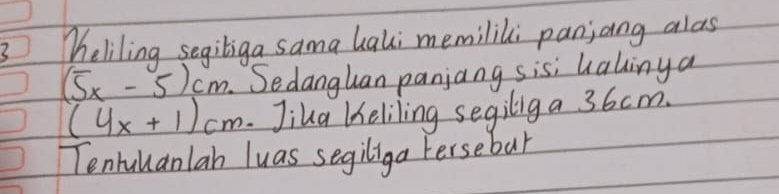 3 Keliling segitiga sama kaki memiliki panjang alas
(5x - 5)cm. Sedangkan panjang sisi kakinya
(4x + 1)cm. Jika Keliling segitiga 36cm.
Tentukanlah luas segitiga tersebut